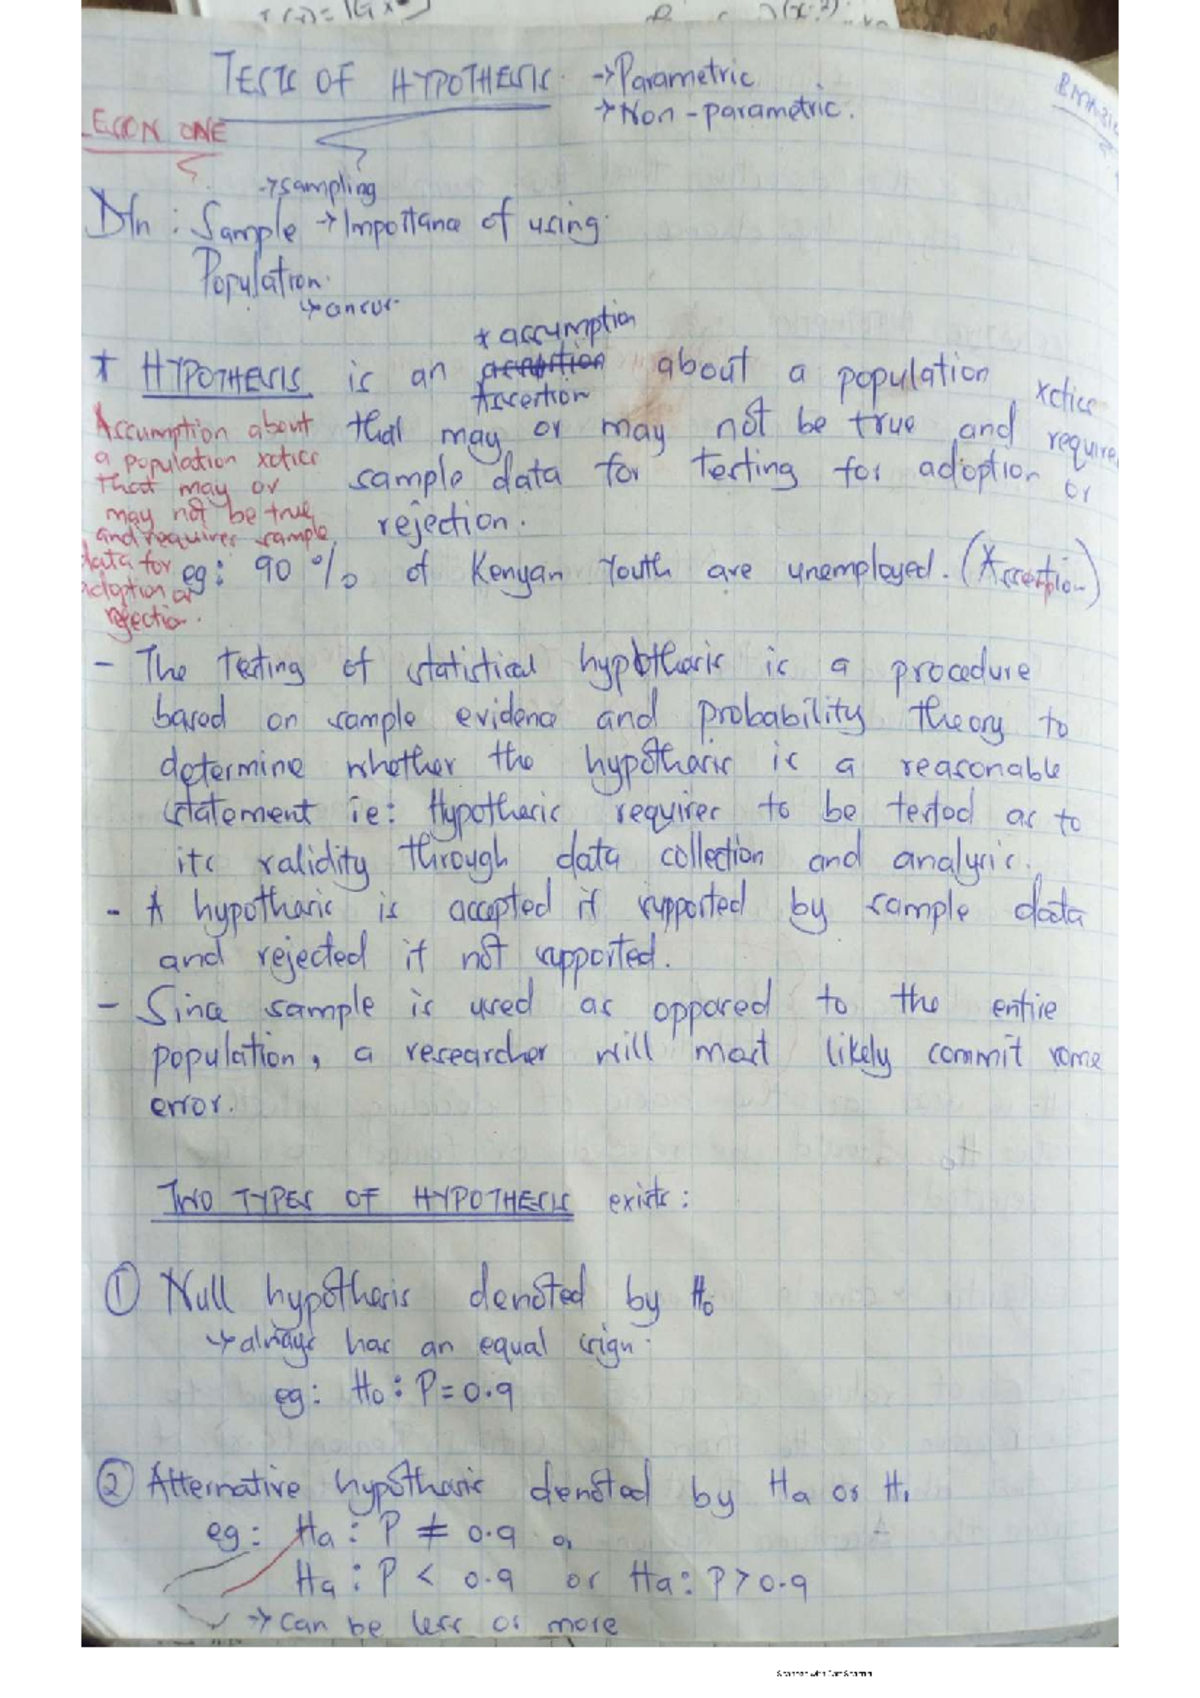 TESTS OF HYPOTHESIS. → Parametric
→ Non-parametric.
LESSON ONE
→ sampling
Dfn: Sample → Importance of using.
Population.
↳ census
* assumption
* HYPOTHESIS is an assertion about a population xctics
Assertion
that may or may not be true and requires
sample data for testing for adoption or
rejection.
Assumption about
a population xctics
that may or
may not be true
and requires sample
data for
adoption or
rejection.
eg: 90 % of Kenyan Youth are unemployed. (Assertion)
- The testing of statistical hypothesis is a procedure
based on sample evidence and probability theory to
determine whether the hypothesis is a reasonable
statement ie: Hypothesis requires to be tested as to
its validity through data collection and analysis.
- A hypothesis is accepted if supported by sample data
and rejected if not supported.
- Since sample is used as opposed to the entire
population, a researcher will most likely commit some
error.
TWO TYPES OF HYPOTHESIS exists:
① Null hypothesis denoted by H₀
↳ always has an equal sign.
eg: H₀: P = 0.9
② Alternative hypothesis denoted by Ha or H₁
eg: Ha: P ≠ 0.9 or
Ha: P < 0.9 or Ha: P > 0.9
→ can be less or more